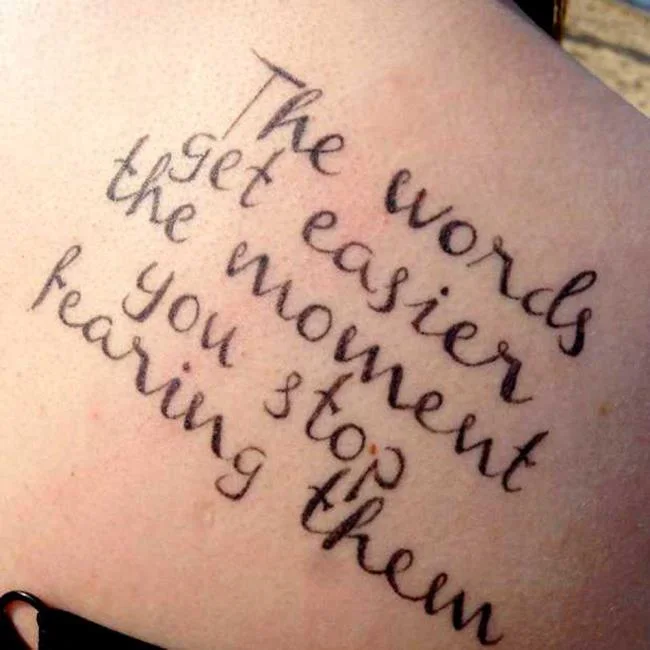 The words
get easier
the moment
you stop
fearing them